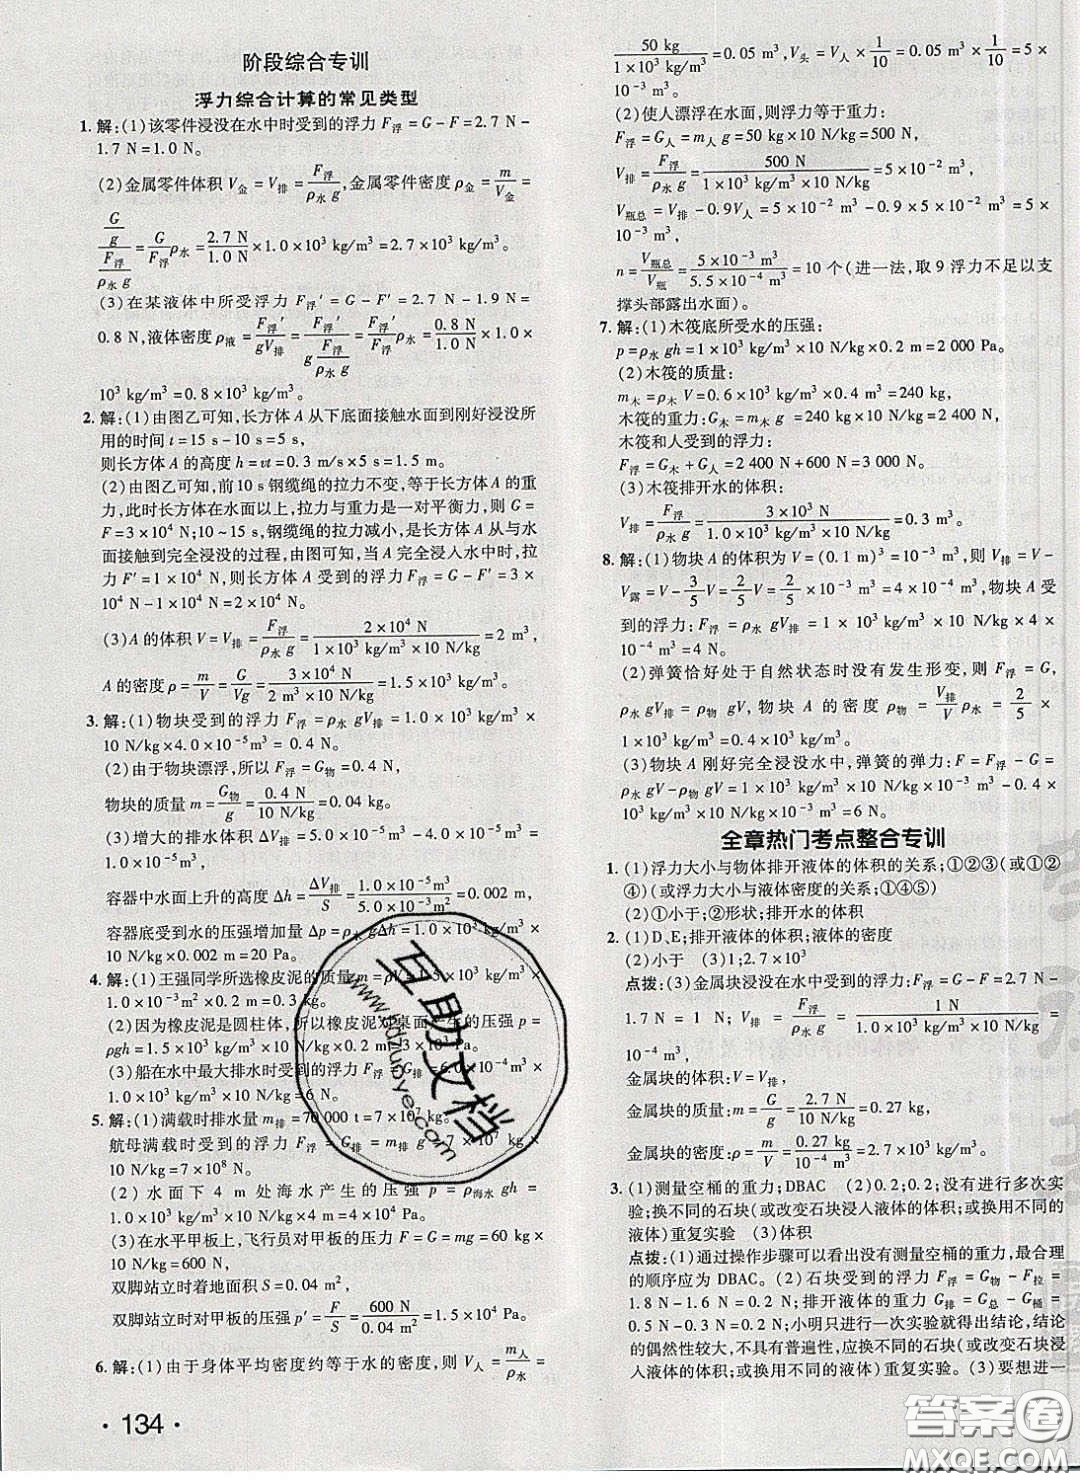 阶段综合专训
浮力综合计算的常见类型
1. 解:(1)该零件浸没在水中时受到的浮力 F浮=G-F=2.7 N-
1.7 N=1.0 N。
(2)金属零件体积 V金=V排=F浮/(ρ水 g),金属零件密度 ρ金=m/V金=
(G/g)/(F浮/(ρ水 g))=(G/F浮)ρ水=(2.7 N/1.0 N)×1.0×10³ kg/m³=2.7×10³ kg/m³。
(3)在某液体中所受浮力 F浮′=G-F′=2.7 N-1.9 N=
0.8 N,液体密度 ρ液=F浮′/(gV排)=F浮′/(g·F浮/(ρ水 g))=(F浮′/F浮)ρ水=(0.8 N/1.0 N)×1.0×
10³ kg/m³=0.8×10³ kg/m³。
2. 解:(1)由图乙可知,长方体 A 从下底面接触水面到刚好浸没所
用的时间 t=15 s-10 s=5 s,
则长方体 A 的高度 h=vt=0.3 m/s×5 s=1.5 m。
(2)由图乙可知,前 10 s 钢缆绳的拉力不变,等于长方体 A 的重
力,此时长方体在水面以上,拉力与重力是一对平衡力,则 G=
F=3×10⁴ N;10~15 s,钢缆绳的拉力减小,是长方体 A 从与水
面接触到完全浸没的过程,由图可知,当 A 完全浸入水中时,拉
力 F′=1×10⁴ N,则长方体 A 受到的浮力 F浮=G-F′=3×
10⁴ N-1×10⁴ N=2×10⁴ N。
(3)A 的体积 V=V排=F浮/(ρ水 g)=2×10⁴ N/(1×10³ kg/m³×10 N/kg)=2 m³,
A 的密度 ρ=m/V=G/(Vg)=3×10⁴ N/(2 m³×10 N/kg)=1.5×10³ kg/m³。
3. 解:(1)物块受到的浮力 F浮=ρ水 gV排=1.0×10³ kg/m³×
10 N/kg×4.0×10⁻⁵ m³= 0.4 N。
(2)由于物块漂浮,所以 F浮=G物=0.4 N,
物块的质量 m=G物/g=0.4 N/(10 N/kg)=0.04 kg。
(3)增大的排水体积 ΔV排=5.0×10⁻⁵ m³-4.0×10⁻⁵ m³=
1.0×10⁻⁵ m³,
容器中水面上升的高度 Δh=ΔV排/S=1.0×10⁻⁵ m³/(5.0×10⁻³ m²)=0.002 m,
容器底受到水的压强增加量 Δp=ρ水 gΔh=1.0×10³ kg/m³×
10 N/kg×0.002 m=20 Pa。
4. 解:(1)王强同学所选橡皮泥的质量 m=ρV=1.5×10³ kg/m³×
1.0×10⁻² m²×0.02 m=0.3 kg。
(2)因为橡皮泥是圆柱体,所以橡皮泥对桌面产生的压强 p=
ρgh=1.5×10³ kg/m³×10 N/kg×0.02 m=300 Pa。
(3)船在水中最大排水时受到的浮力 F浮=ρ水 gV排=1.0×
10³ kg/m³×10 N/kg×6.0×10⁻⁴ m³=6 N。
5. 解:(1)满载时排水量 m排=70 000 t=7×10⁷ kg,
航母满载时受到的浮力 F浮=G排=m排 g=7×10⁷ kg×
10 N/kg=7×10⁸ N。
(2)水面下 4 m 处海水产生的压强 p=ρ海水 gh=
1.0×10³ kg/m³×10 N/kg×4 m=4×10⁴ Pa。
(3)在水平甲板上,飞行员对甲板的压力 F=G=mg=60 kg×
10 N/kg=600 N,
双脚站立时着地面积 S=0.04 m²,
双脚站立时对甲板的压强 p′=F/S=600 N/0.04 m²=1.5×10⁴ Pa。
6. 解:(1)由于身体平均密度约等于水的密度,则 V人=m人/ρ水=
·134·
50 kg/(1×10³ kg/m³)=0.05 m³,V头=V人×1/10=0.05 m³×1/10=5×
10⁻³ m³。
(2)使人漂浮在水面,浮力等于重力:
F浮=G人=m人 g=50 kg×10 N/kg=500 N,
V排=F浮/(ρ水 g)=500 N/(1×10³ kg/m³×10 N/kg)=5×10⁻² m³,
V瓶总=V排-0.9V人=5×10⁻² m³-0.9×5×10⁻² m³=5×
10⁻³ m³,
n=V瓶总/V瓶=5×10⁻³ m³/(5.5×10⁻⁴ m³)=10 个(进一法,取 9 浮力不足以支
撑头部露出水面)。
7. 解:(1)木筏底所受水的压强:
p=ρ水 gh=1×10³ kg/m³×10 N/kg×0.2 m=2 000 Pa。
(2)木筏的质量:
m木=ρ木 V=0.6×10³ kg/m³×0.4 m³=240 kg,
木筏的重力:G木=m木 g=240 kg×10 N/kg=2 400 N,
木筏和人受到的浮力:
F浮=G木+G人=2 400 N+600 N=3 000 N。
(3)木筏排开水的体积:
V排=F浮/(ρ水 g)=3×10³ N/(1×10³ kg/m³×10 N/kg)=0.3 m³。
8. 解:(1)物块 A 的体积为 V=(0.1 m)³=10⁻³ m³,则 V排=V-
V露=V-3/5V=2/5V=2/5×10⁻³ m³=4×10⁻⁴ m³,物块 A 受
到的浮力:F浮=ρ水 gV排=1×10³ kg/m³×10 N/kg×4×
10⁻⁴ m³=4 N。
(2)弹簧恰好处于自然状态时没有发生形变,则 F浮=G,
ρ水 gV排=ρ物 gV,物块 A 的密度 ρ物=(V排/V)ρ水=2/5×
1×10³ kg/m³=0.4×10³ kg/m³。
(3)物块 A 刚好完全浸没水中,弹簧的弹力:F=F浮-G=
ρ水 gV-ρ物 gV=1×10³ kg/m³×10 N/kg×10⁻³ m³-0.4×
10³ kg/m³×10 N/kg×10⁻³ m³=6 N。
全章热门考点整合专训
1. (1)浮力大小与物体排开液体的体积的关系;①②③(或①②
④)(或浮力大小与液体密度的关系;①④⑤)
(2)①小于;②形状;排开水的体积
2. (1)D、E;排开液体的体积;液体的密度
(2)小于 (3)1;2.7×10³
点拨:(3)金属块浸没在水中时受到的浮力:F浮=G-F=2.7 N-
1.7 N=1 N;V排=F浮/(ρ水 g)=1 N/(1.0×10³ kg/m³×10 N/kg)=
1×10⁻⁴ m³,
金属块的体积:V=V排,
金属块的质量:m=G/g=2.7 N/(10 N/kg)=0.27 kg,
金属块的密度:ρ=m/V=0.27 kg/(1×10⁻⁴ m³)=2.7×10³ kg/m³。
3. (1)测量空桶的重力;DBAC (2)0.2;0.2;没有进行多次实
验;换不同的石块(或改变石块浸入液体的体积;或换用不同的
液体)重复实验 (3)体积
点拨:(1)通过操作步骤可以看出没有测量空桶的重力,最合理
的顺序应为 DBAC。(2)石块受到的浮力 F浮=G物-F拉=
1.8 N-1.6 N=0.2 N;排开液体的重力 G排=G总-G桶=
0.5 N-0.3 N=0.2 N;小明只进行一次实验就得出结论,结论
的偶然性较大,不具有普遍性,应换不同的石块(或改变石块浸
入液体的体积;或换用不同的液体)重复实验。(3)要想进一
互助文档
www.hdzuoye.com
答案圈
MXQE.COM